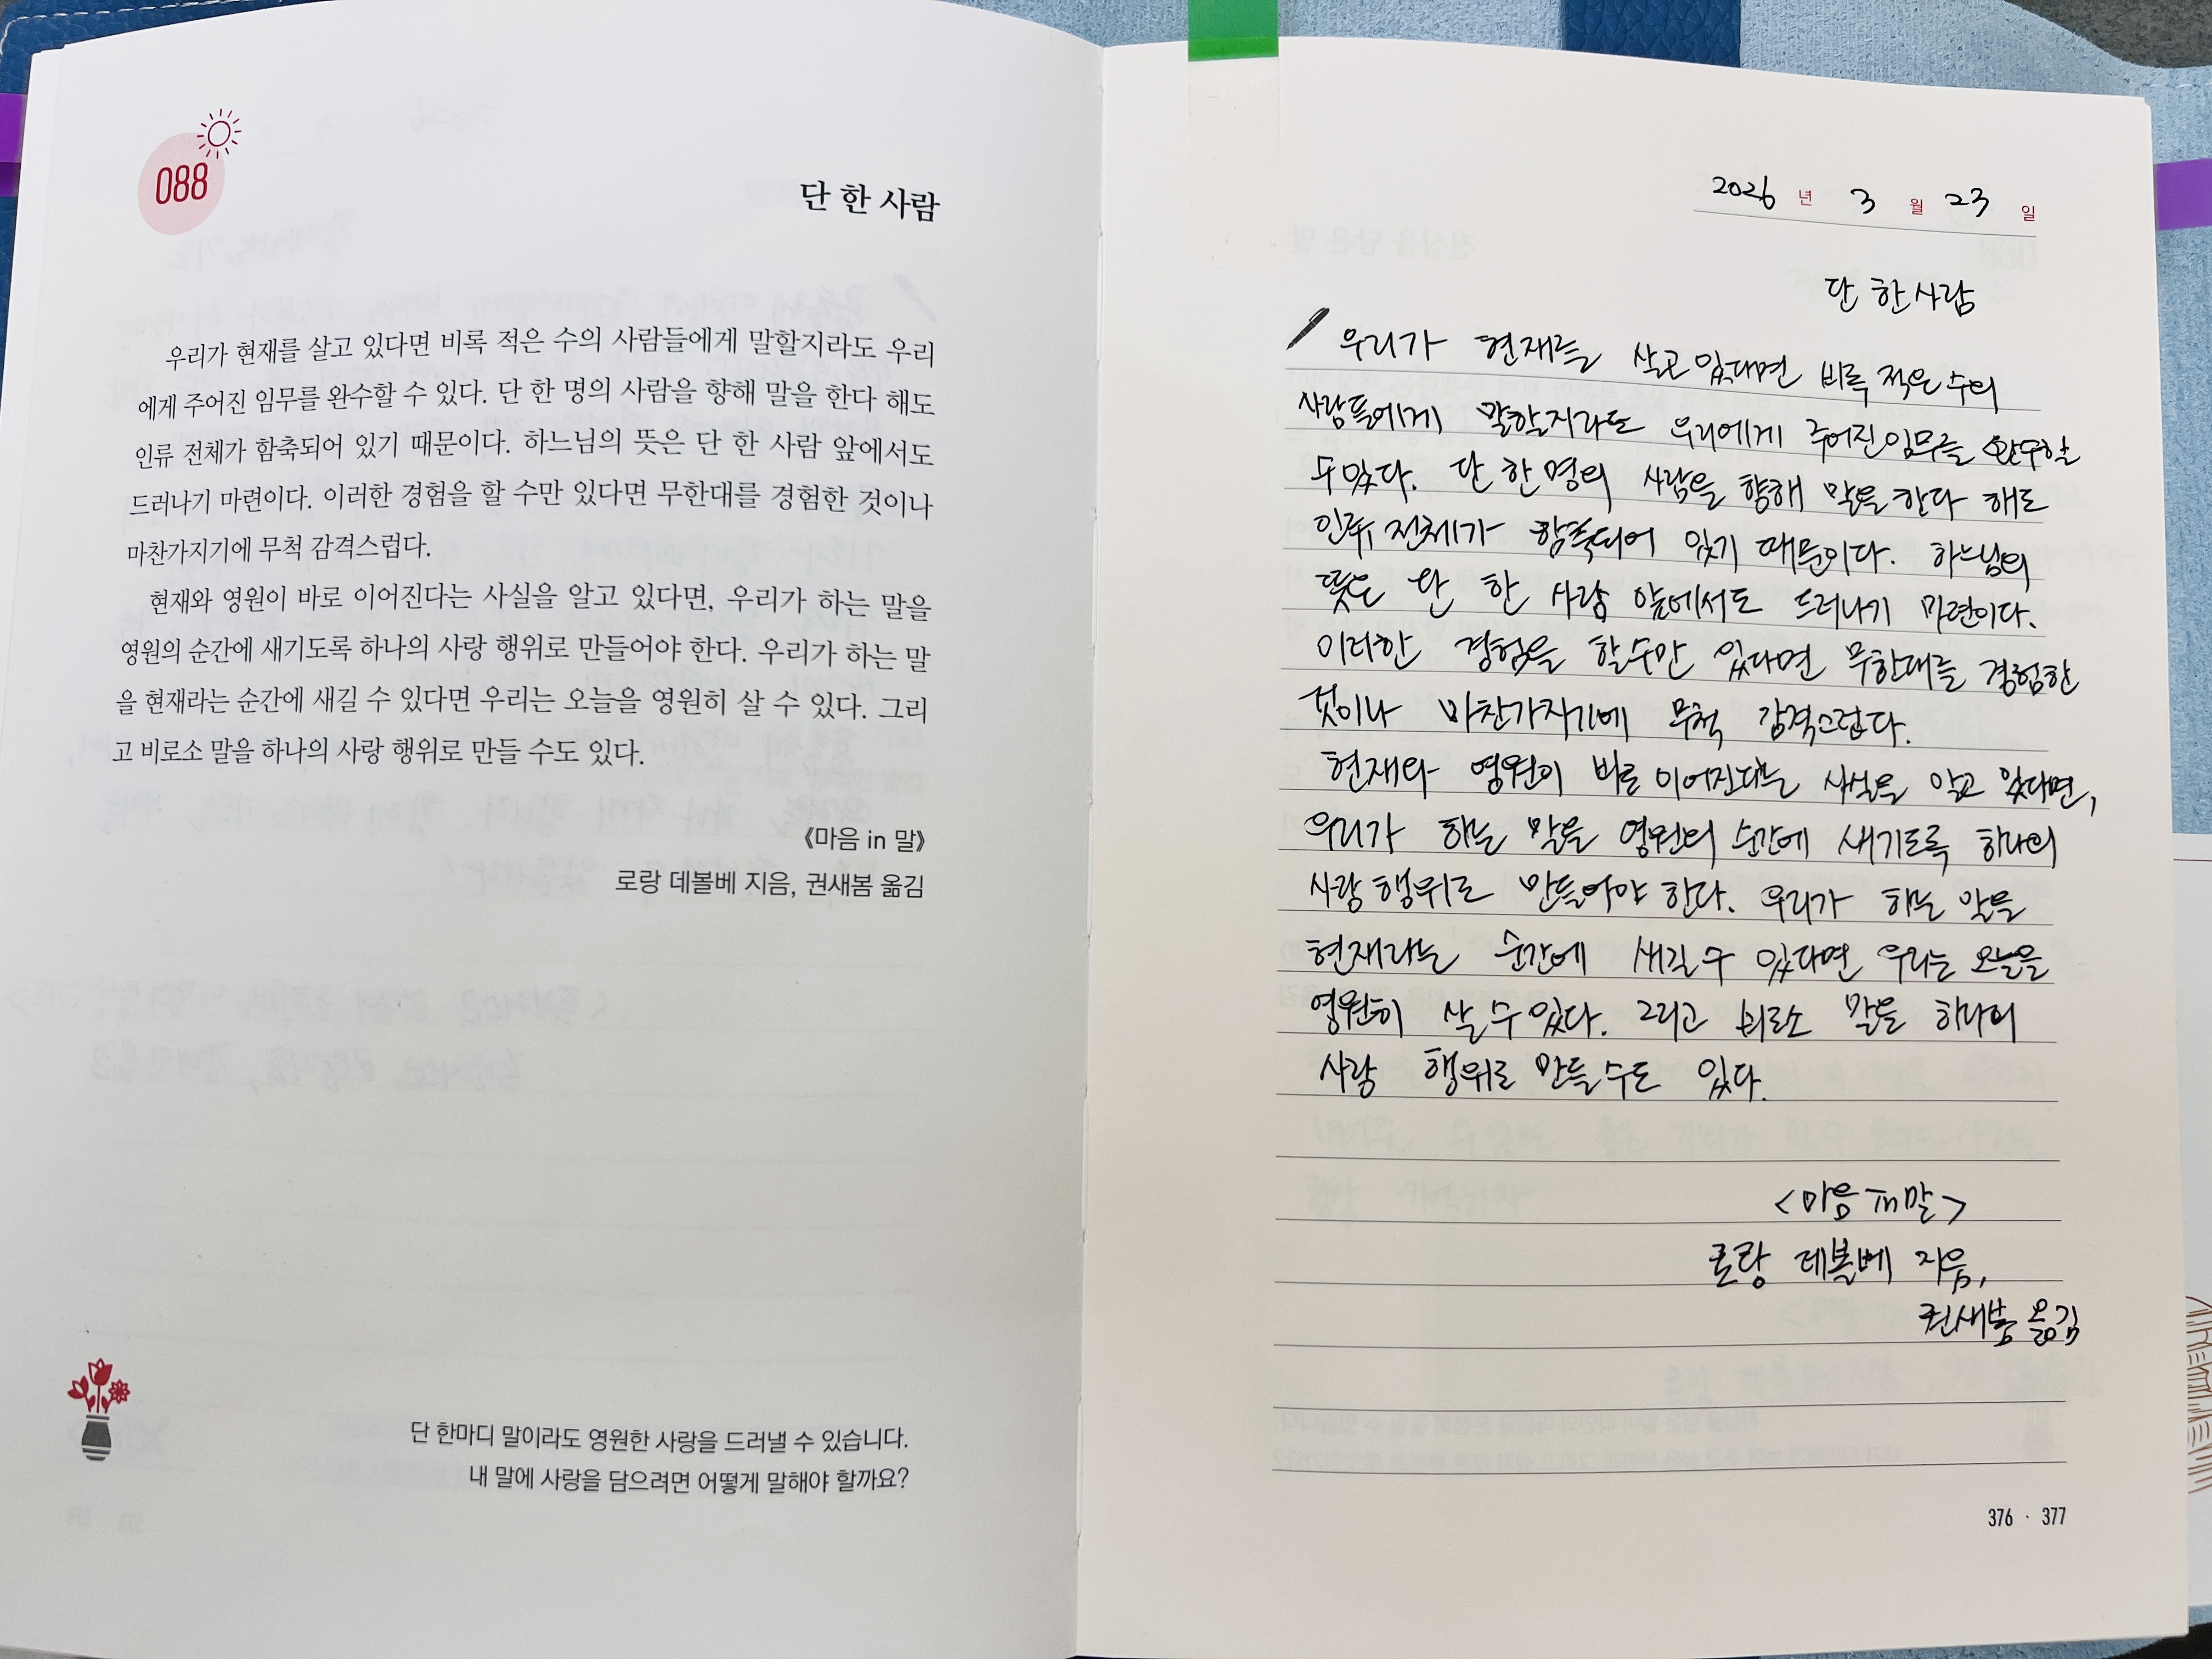 088
단 한 사람
우리가 현재를 살고 있다면 비록 적은 수의 사람들에게 말할지라도 우리
에게 주어진 임무를 완수할 수 있다. 단 한 명의 사람을 향해 말을 한다 해도
인류 전체가 함축되어 있기 때문이다. 하느님의 뜻은 단 한 사람 앞에서도
드러나기 마련이다. 이러한 경험을 할 수만 있다면 무한대를 경험한 것이나
마찬가지기에 무척 감격스럽다.
현재와 영원이 바로 이어진다는 사실을 알고 있다면, 우리가 하는 말을
영원의 순간에 새기도록 하나의 사랑 행위로 만들어야 한다. 우리가 하는 말
을 현재라는 순간에 새길 수 있다면 우리는 오늘을 영원히 살 수 있다. 그리
고 비로소 말을 하나의 사랑 행위로 만들 수도 있다.
《마음 in 말》
로랑 데볼베 지음, 권새봄 옮김
단 한마디 말이라도 영원한 사랑을 드러낼 수 있습니다.
내 말에 사랑을 담으려면 어떻게 말해야 할까요?
2026 년 3 월 23 일
단 한 사람
우리가 현재를 살고 있다면 비록 적은 수의
사람들에게 말할지라도 우리에게 주어진 임무를 완수할
수 있다. 단 한 명의 사람을 향해 말을 한다 해도
인류 전체가 함축되어 있기 때문이다. 하느님의
뜻은 단 한 사람 앞에서도 드러나기 마련이다.
이러한 경험을 할 수만 있다면 무한대를 경험한
것이나 마찬가지기에 무척 감격스럽다.
현재와 영원이 바로 이어진다는 사실을 알고 있다면,
우리가 하는 말을 영원의 순간에 새기도록 하나의
사랑 행위로 만들어야 한다. 우리가 하는 말을
현재라는 순간에 새길 수 있다면 우리는 오늘을
영원히 살 수 있다. 그리고 비로소 말을 하나의
사랑 행위로 만들 수도 있다.
<마음 in 말>
로랑 데볼베 지음,
권새봄 옮김
376 · 377